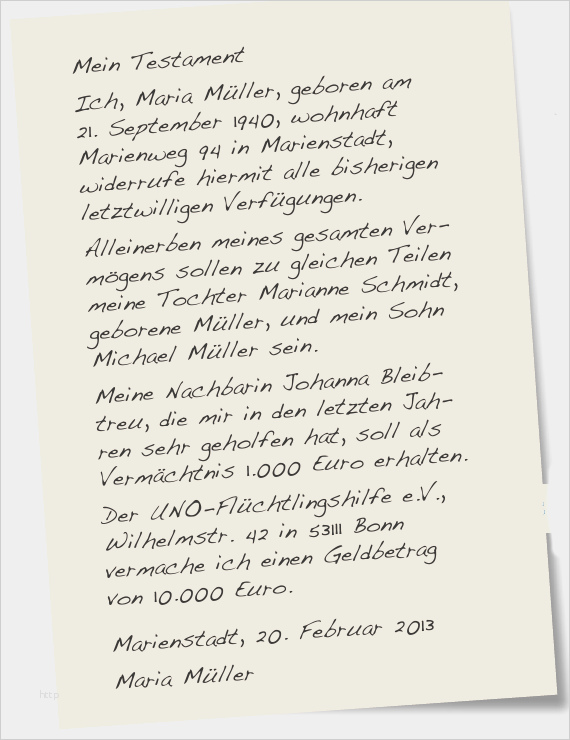 Mein Testament
Ich, Maria Müller, geboren am
21. September 1940, wohnhaft
Marienweg 94 in Marienstadt,
widerrufe hiermit alle bisherigen
letztwilligen Verfügungen.
Alleinerben meines gesamten Ver-
mögens sollen zu gleichen Teilen
meine Tochter Marianne Schmidt,
geborene Müller, und mein Sohn
Michael Müller sein.
Meine Nachbarin Johanna Bleib-
treu, die mir in den letzten Jah-
ren sehr geholfen hat, soll als
Vermächtnis 1.000 Euro erhalten.
Der UNO-Flüchtlingshilfe e.V.,
Wilhelmstr. 42 in 53111 Bonn
vermache ich einen Geldbetrag
von 10.000 Euro.
Marienstadt, 20. Februar 2013
Maria Müller